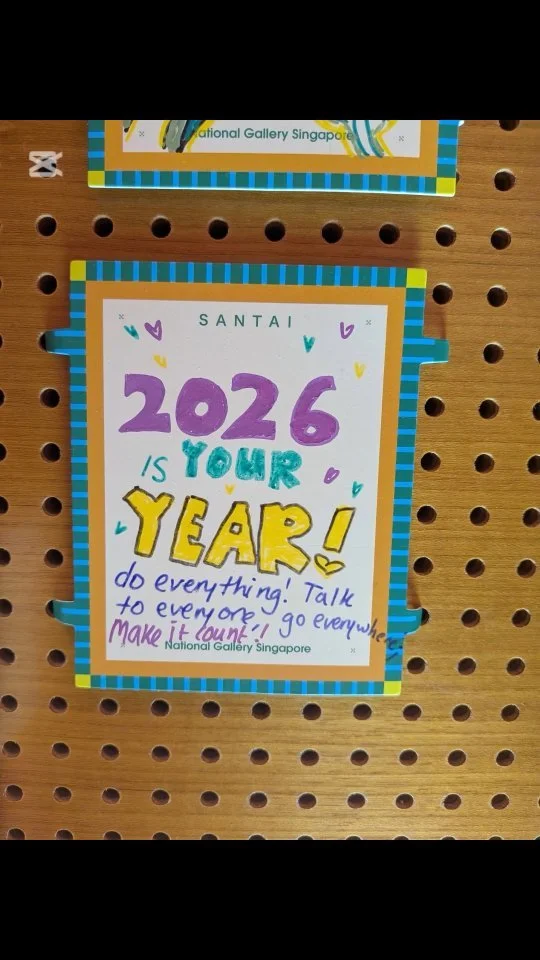 National Gallery Singapore
SANTAI
2026
IS YOUR
YEAR!
do everything! Talk
to everyone, go everywhere!
Make it count!!
National Gallery Singapore